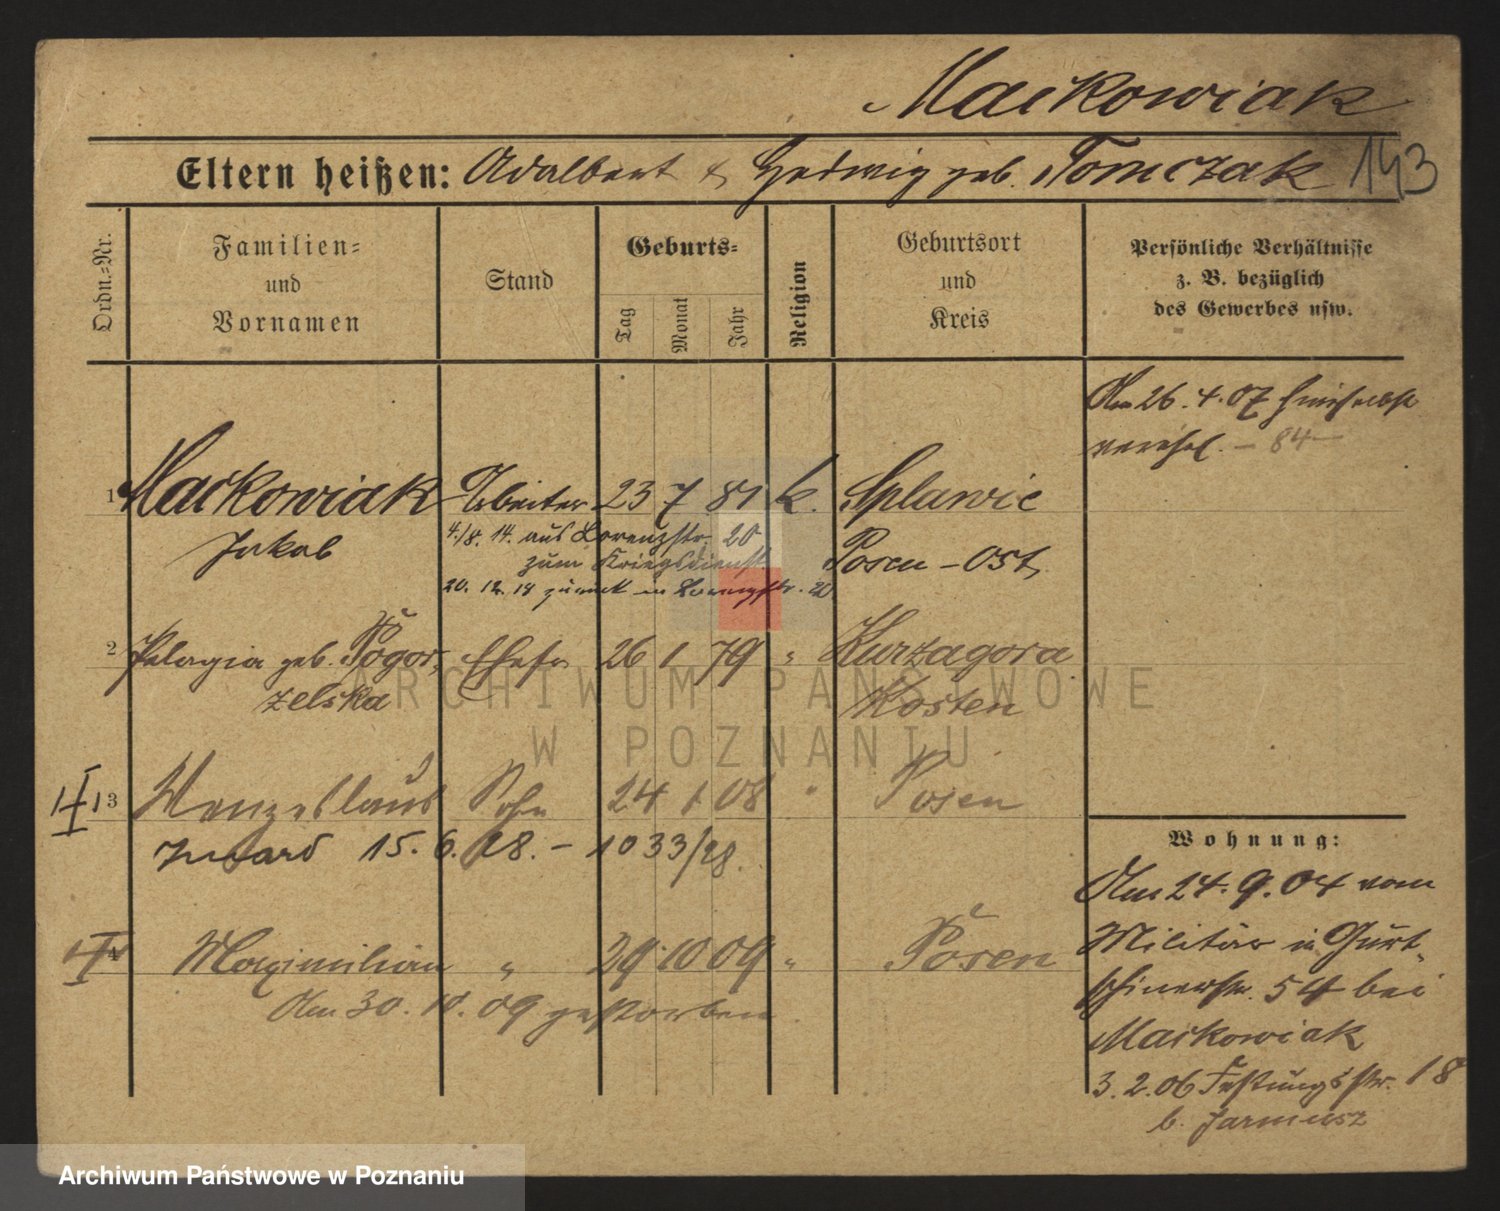 Maćkowiak
Eltern heißen: Adalbert & Hedwig geb. Tomczak 143
Ordn.=Nr.
Familien=
und
Vornamen
Stand
Geburts=
Tag
Monat
Jahr
Religion
Geburtsort
und
Kreis
Persönliche Verhältnisse
z. B. bezüglich
des Gewerbes usw.
Am 26. 4. 07 hierselbst
verehel. – 84 –
1 Maćkowiak Arbeiter 23 7 81 k. Splawie
Jakob
4./8. 14. aus Lorenzstr. 20
zum Kriegsdienst
Posen – Ost
20. 12. 18 zurück in Lorenzstr. 20
2 Pelagia geb. Pogor- Ehefr. 26 1 79 " Kurzagora
zelska
Kosten
3 Wenzeslaus Sohn 24 1 08 " Posen
15. 6. 28. – 1033/28.
Wohnung:
Am 24. 9. 04 vom
Militär in Gurt-
schinerstr. 54 bei
Maćkowiak
3. 2. 06 Festungsstr. 18
b. Jarmusz
4 Maximilian " 29 10 09 " Posen
Am 30. 10. 09 gestorben.
ARCHIWUM PAŃSTWOWE
W POZNANIU
Archiwum Państwowe w Poznaniu